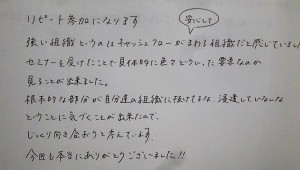 リピート参加になります
安心して
強い組織というのはキャッシュフローがまわる組織だと感じていました
セミナーを受けたことで具体的に色々どういった要素なのか
見ることが出来ました。
根本的な部分が自分達の組織に抜けてるな、浸透していないな
ということに気づくことが出来たので、
じっくり向き合おうと考えています。
今回も本当にありがとうございました!!